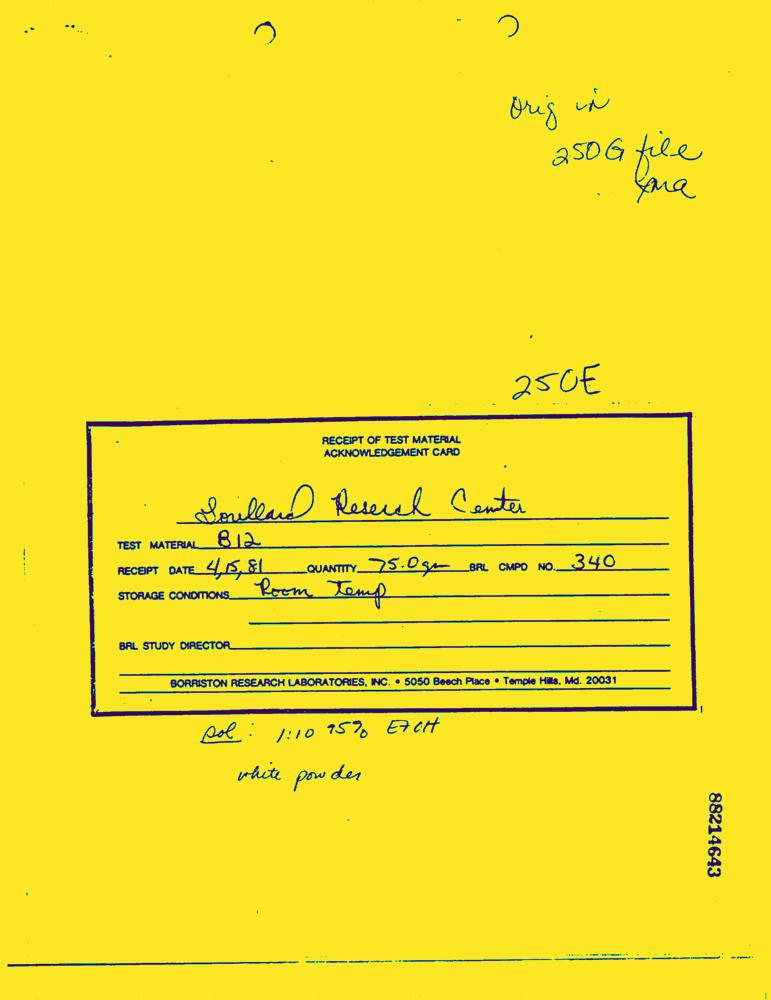 Orig in
250 G file
250E
RECEIPT OF TEST MATERIAL
ACKNOWLEDGEMENT CARD
Lorillard Reserch Center
TEST MATERIAL B12
RECEIPT DATE 4,15,81 QUANTITY 75.0 gm BRL CMPD NO. 340
STORAGE CONDITIONS Room Temp
BRL STUDY DIRECTOR
BORRISTON RESEARCH LABORATORIES, INC. • 5050 Beech Place • Temple Hills, Md. 20031
sol: 1:10 95% EtOH
white powder
88214643